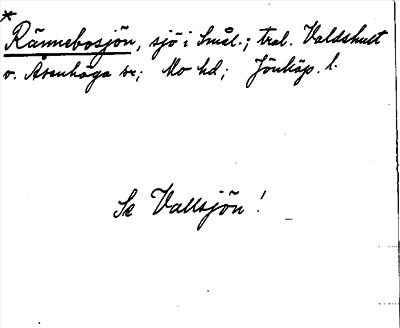 *
Rännebosjön, sjö i Smål.; trol. Valdshult
o. Åsenhöga sr; Mo hd; Jönköp. l.
Se Vallsjön!